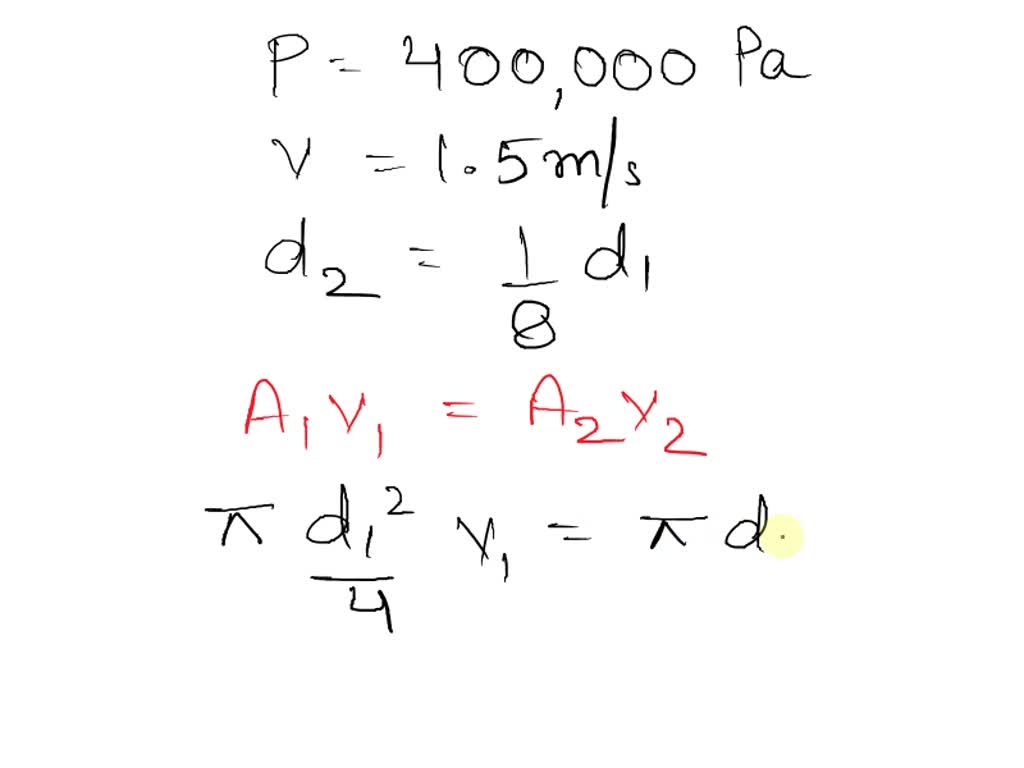 P = 400,000 Pa
v = 1.5 m/s
d₂ = 1/8 d₁
A₁v₁ = A₂v₂
π d₁²/4 v₁ = π d